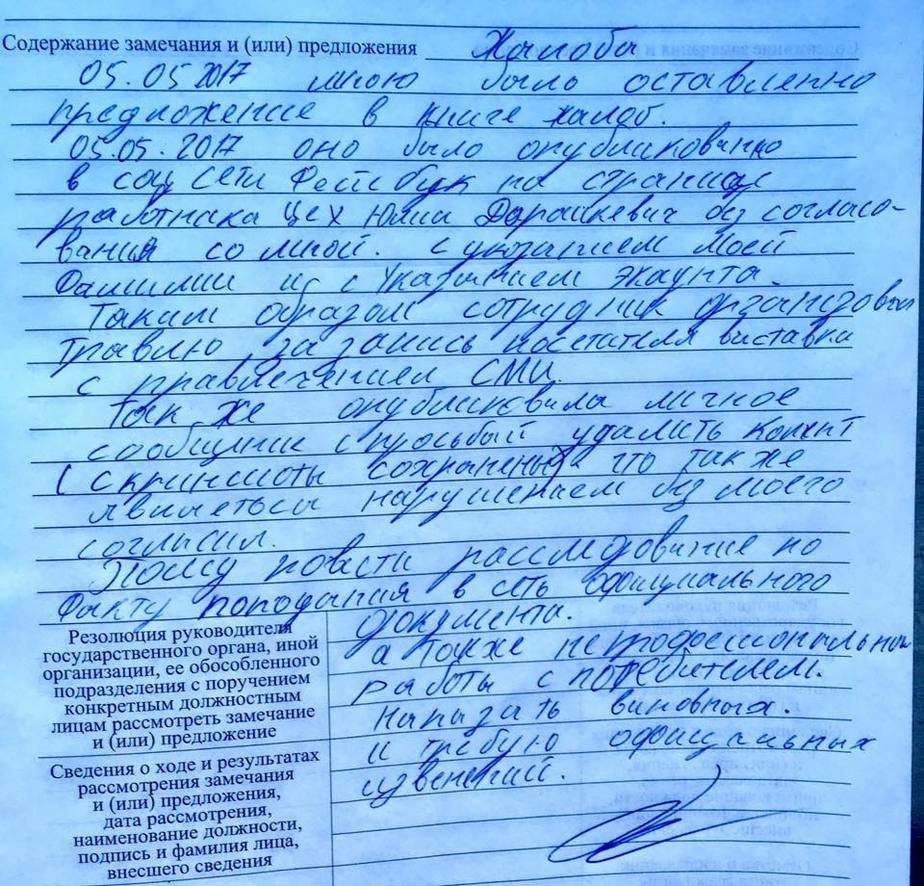 Содержание замечания и (или) предложения Жалоба
05.05 2017 мною было оставленно
предложение в книге жалоб.
05.05.2017 оно было опубликованно
в соц сети Фейсбук на странице
работника Цех Юлии Дарашкевич без согласо-
вания со мной. с указанием моей
Фамилии и с Указанием экаунта.
Таким образом сотрудник организовал
травлю за запись посетателя выставки
с правлечением СМИ.
Так же опубликовала личное
сообщение с просьбый удалить контент
(скриншоты сохранены) что также
являеться нарушением без моего
согласия.
Прошу повести расследование по
Факту пополания в сеть официального
документа.
а также не професиональной
работы с потребителем.
Наказать виновных.
и требую официальных
извенений.
Резолюция руководителя
государственного органа, иной
организации, ее обособленного
подразделения с поручением
конкретным должностным
лицам рассмотреть замечание
и (или) предложение
Сведения о ходе и результатах
рассмотрения замечания
и (или) предложения,
дата рассмотрения,
наименование должности,
подпись и фамилия лица,
внесшего сведения